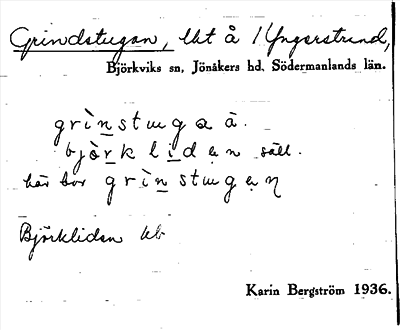 Grindstugan, lht å /Yngerstrand,
Björkviks sn, Jönåkers hd, Södermanlands län.
grìnstuga à.
bjòrkliden säll.
här bor grìnstugen
Björkliden kb
Karin Bergström 1936.